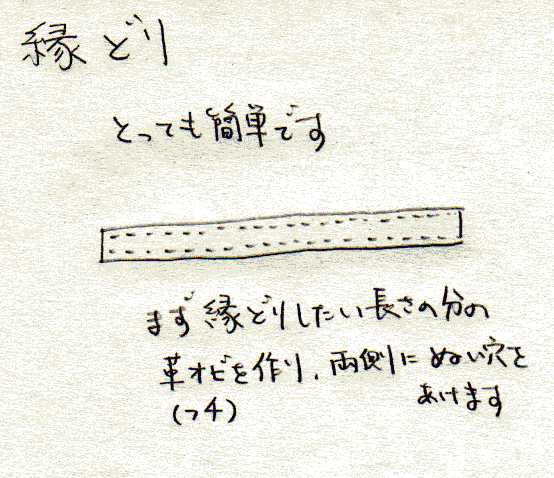 縁どり
とっても簡単です
まず縁どりしたい長さの分の
革オビを作り、両側にぬい穴を
あけます